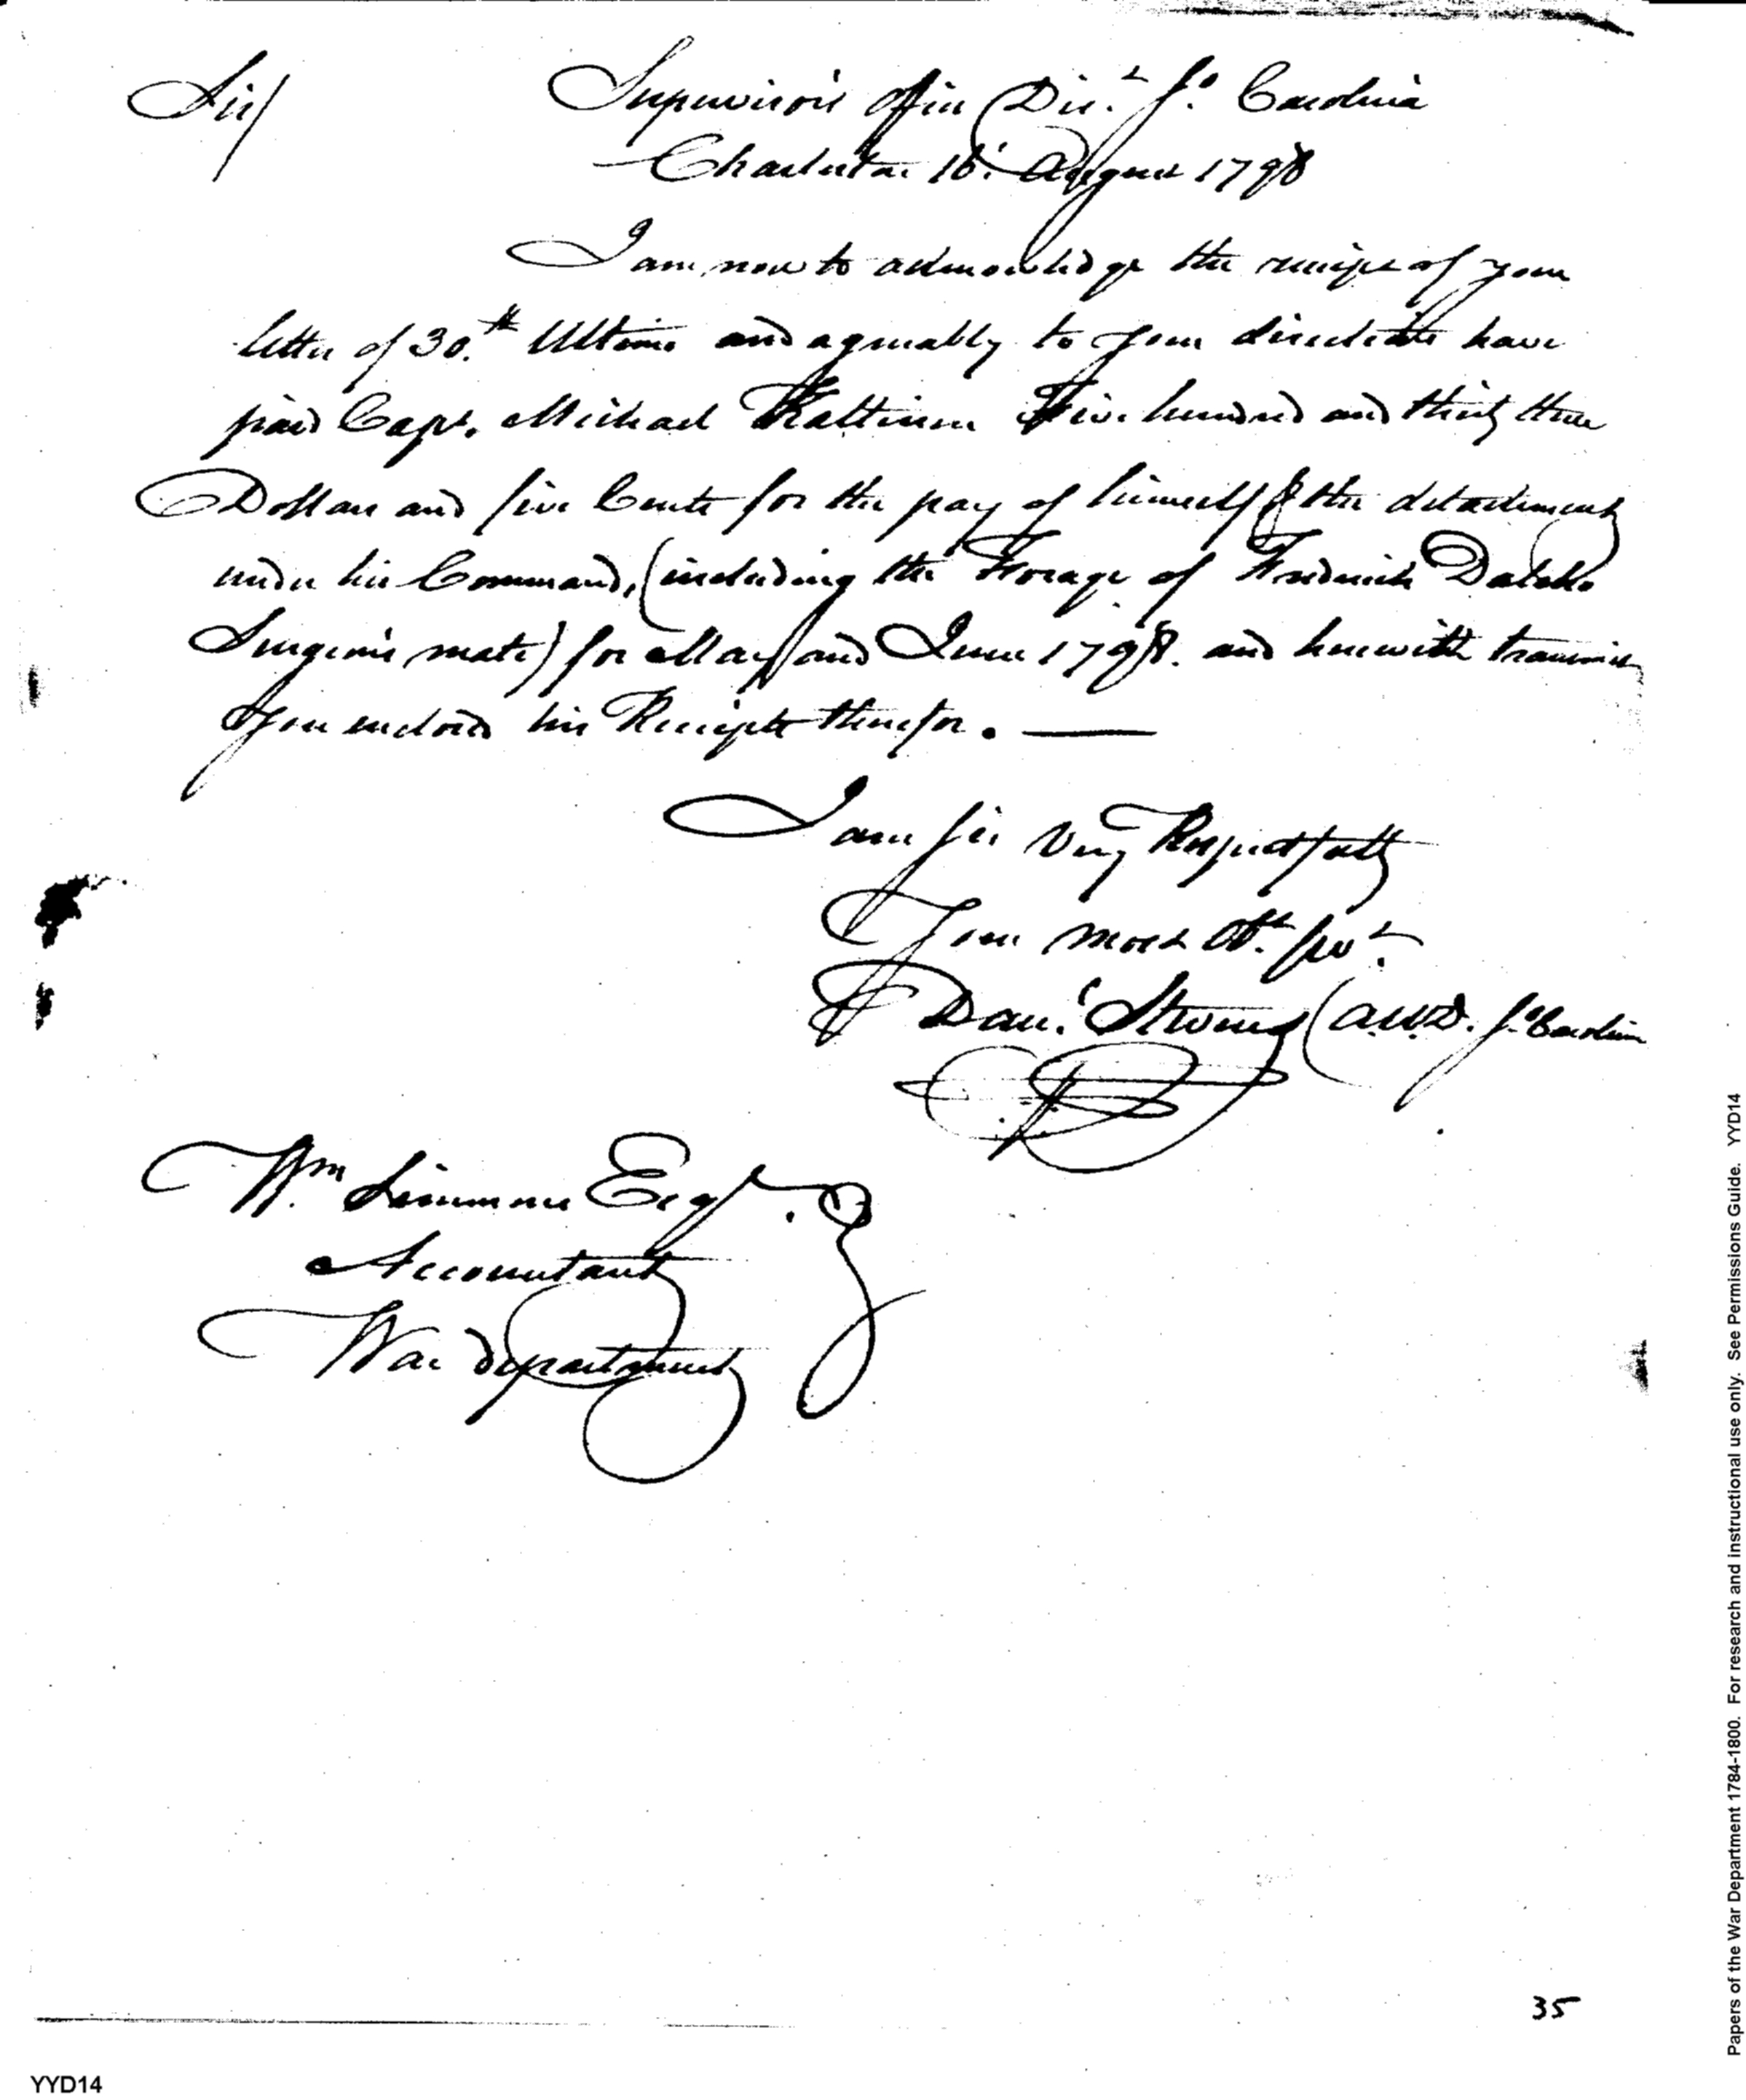 Sir/
Supervisor's Office Dist. So. Carolina
Charleston 16. August 1798
I am now to acknowledge the receipt of your
letter of 30.th Ultimo and agreeably to your directions have
paid Capt. Michael Kaltisen Five hundred and thirty three
Dollars and five Cents for the pay of himself & the detachment
under his Command, (including the Forage of Frederick Dalcho
Surgeon's mate) for May and June 1798. and herewith transmit
you enclosed his Receipts therefor.
I am Sir Very Respectfully
Your most Obt. Servt.
Danl. Stevens (A.W.D. So. Carolina
Wm. Simmons Esqr.
Accountant
War department
35
YYD14
Papers of the War Department 1784-1800. For research and instructional use only. See Permissions Guide. YYD14